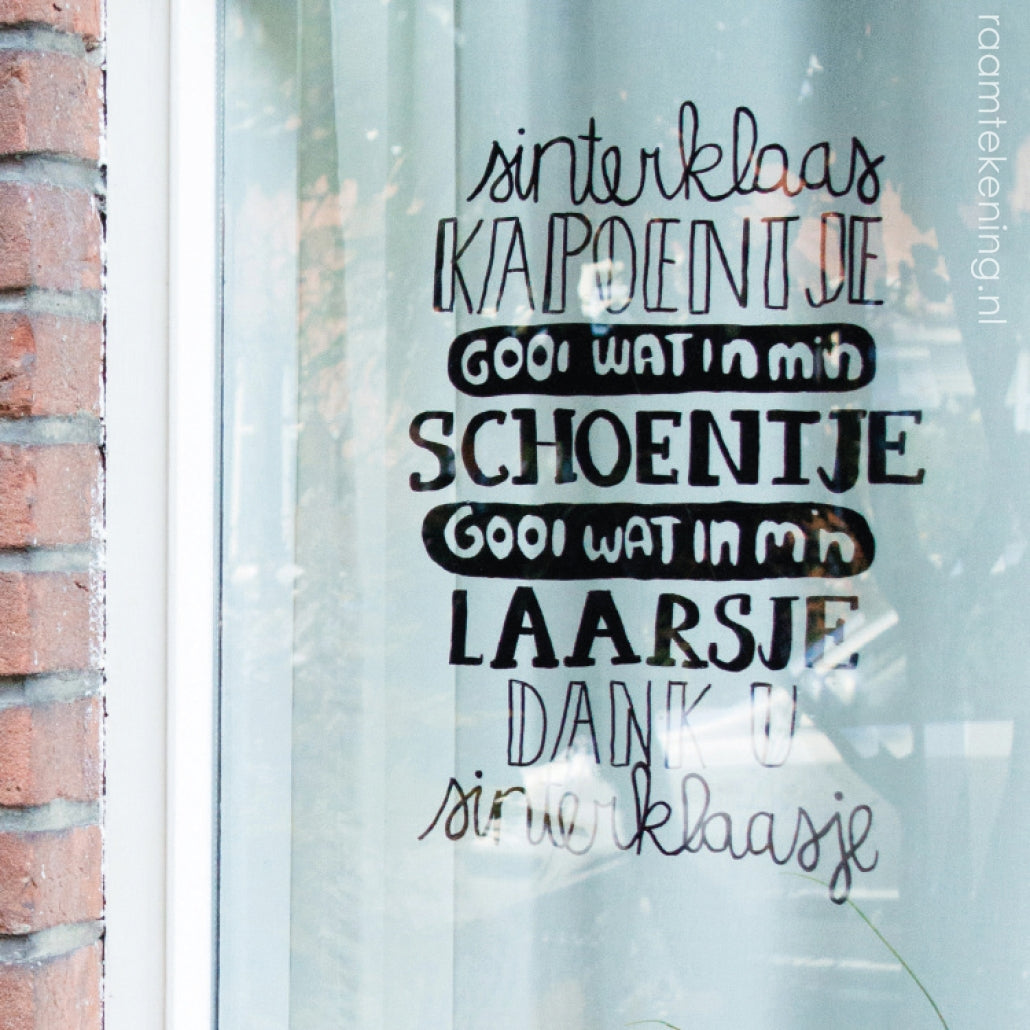 sinterklaas
KAPOENTJE
GOOI WAT IN mijn
SCHOENTJE
GOOI WAT IN m'n
LAARSJE
DANK U
sinterklaasje
raamtekening.nl